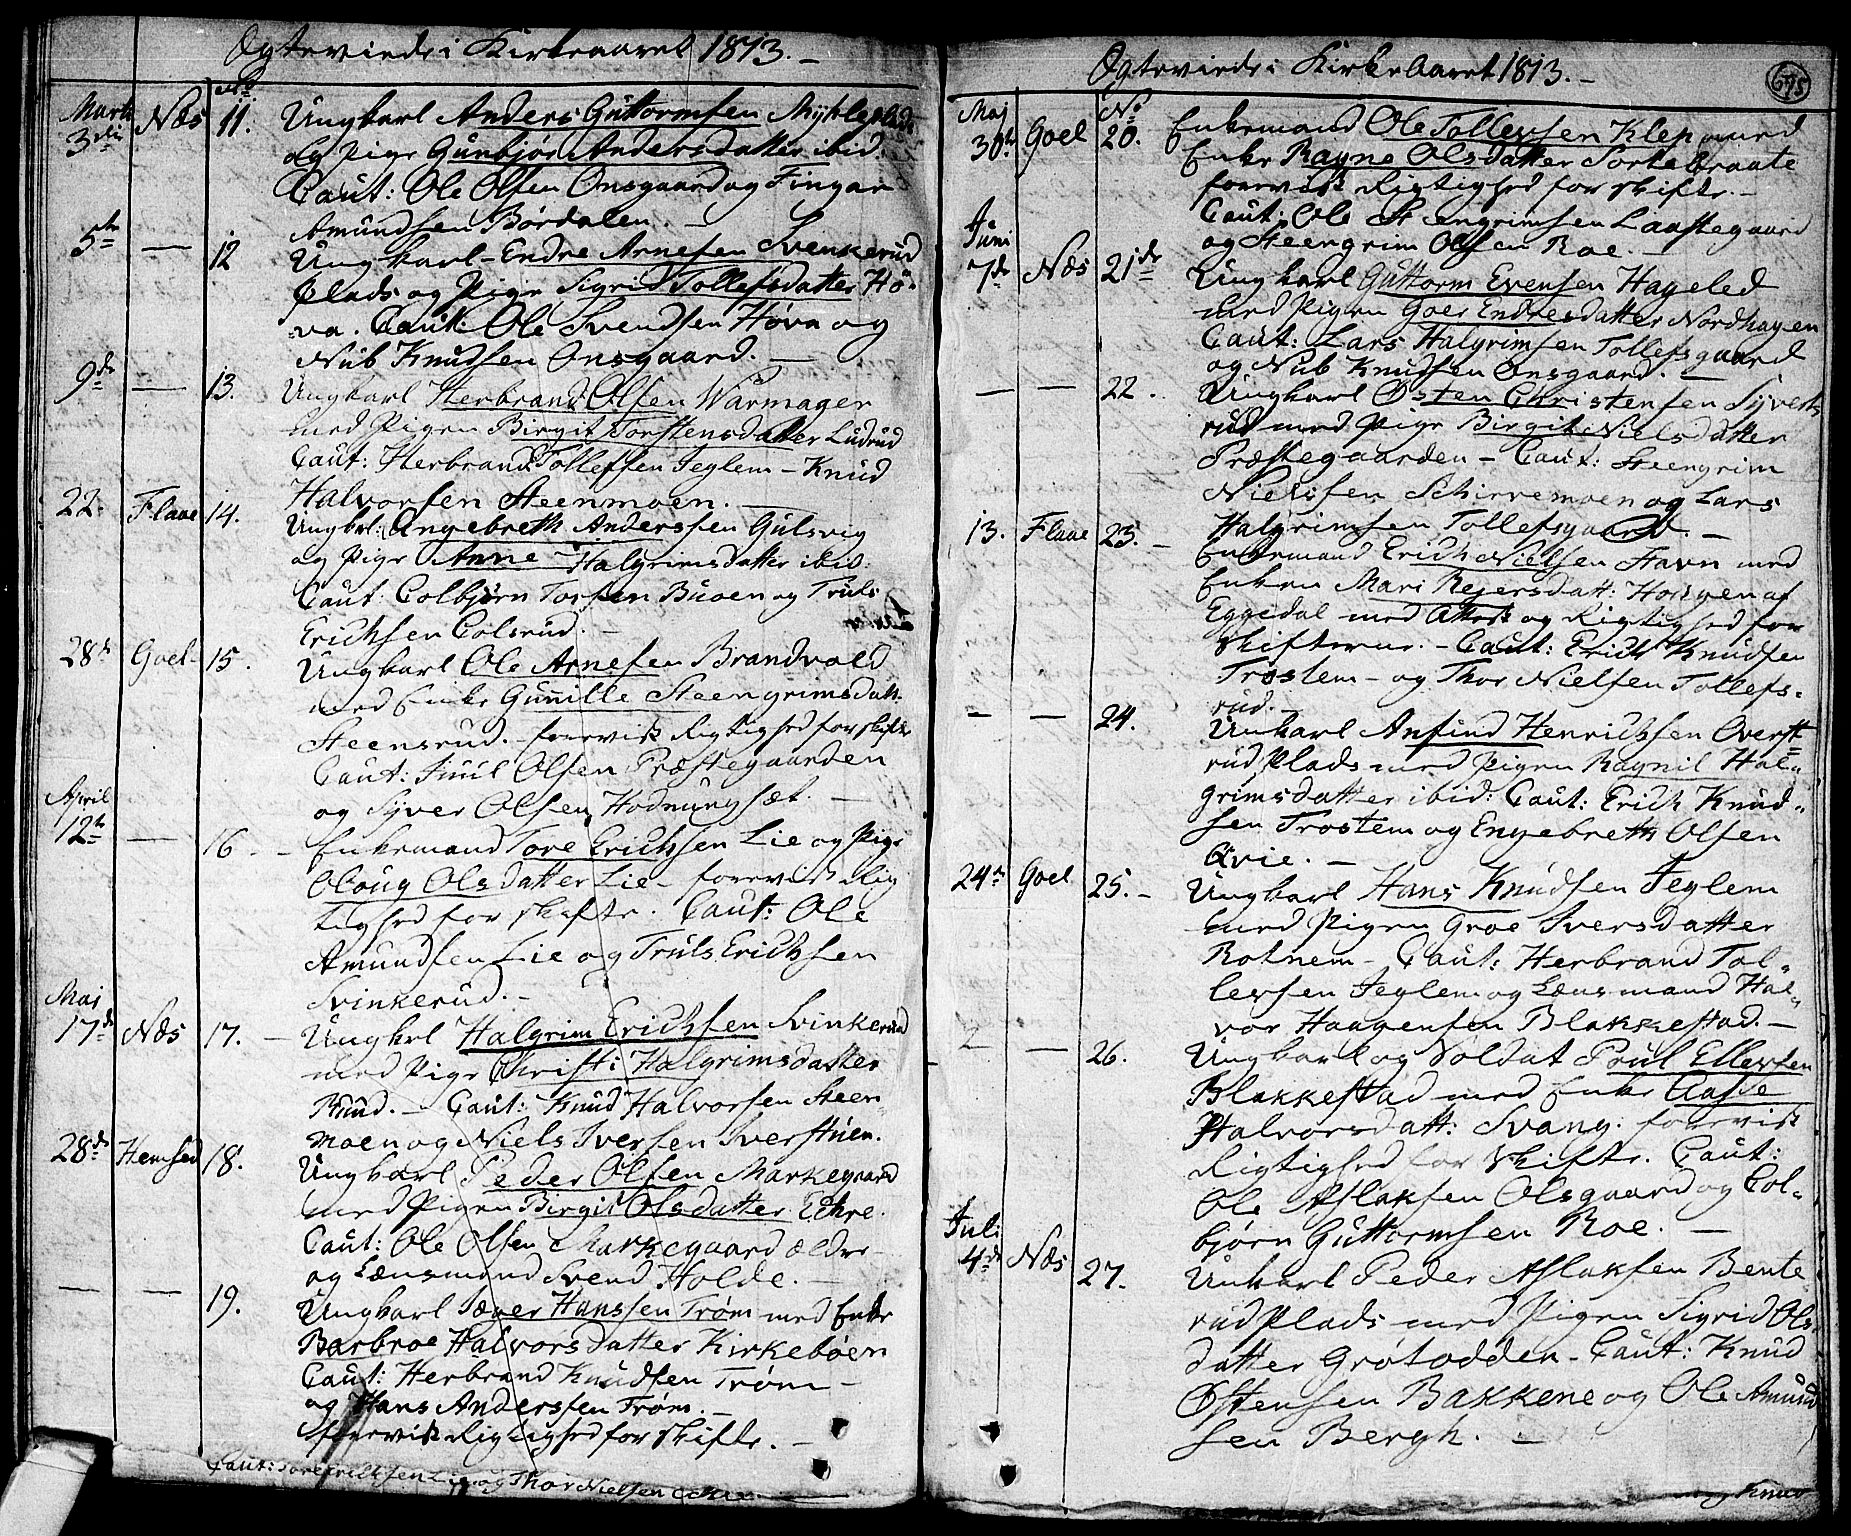 Ægteviede i Kirkeaaret 1813.
No
Marti 3die Næs 11. Ungkarl Anders Guttormsen Myklep
og Pige Gunbjør Andersdatter ibid.
Caut: Ole Olsen Onsgaard og Fingar
Amundsen Børdalen. —
5te — 12 Ungkarl Endre Arnesen Svenkerud
Plads og Pige Sigrid Tollefsdatter Hø-
va. Caut: Ole Svendsen Høva og
Nub Knudsen Onsgaard. —
9de — 13. Ungkarl Herbrand Olsen Warmager
med Pigen Birgit Torstensdatter Ludrud
Caut: Herbrand Tollefsen Jeglem - Knud
Halvorsen Steenmoen. —
22. Flaae 14. Ungkrl: Angebreth Anderssen Gulsvig
og Pige Anne Halgrimsdatter ibid.
Caut: Colbjørn Torsen Buoen og Truls
Erichsen Colsrud. —
28de Goel - 15. Ungkarl Ole Arnesen Brandvold
med Enke Gunille Steengrimsdatt:
Steensrud. - foreviist Rigtighed for skifte
Caut: Juul Olsen Præstegaarden
og Syver Olsen Hodnungsæt. —
April 12te — 16. - Enkemand Tore Erichsen Lie og Pige
Oloug Olsdatter Lie - foreviist Rig
tighed for skifte. Caut: Ole
Amundsen Lie og Truls Erichsen
Svinkerud. -
Maj 17de Næs 17. - Ungkrl Halgrim Erichsen Svinkerud
med Pige Christi Halgrimsdatter
Ruud. - Caut: Knud Halvorsen Steen
moen og Niels Iversen Iverstuen.
28de Hemsed 18. Ungkarl Peder Olsen Markegaard
med Pigen Birgit Olsdatter Echre.
Caut: Ole Olsen Markegaard ældre
og Lænsmand Svend Holde. —
— — 19. Ungkarl Sæver Hanssen Trøm med Enke
Barbroe Halvorsdatter Kirkebøen
Caut: Herbrand Knudsen Trøm -
og Hans Anderssen Trøm. -
foreviist Rigtighed for skifte. —
Caut: Tore Erichsen Lie og Thor Nielsen
Ægteviede i Kirke Aaret 1813. -
675
No
Maj 30te Goel 20. Enkemand Ole Tollevsen Klep med
Enke Ragne Olsdatter Sortebraate
foreviist Rigtighed for skifte. -
Caut: Ole Steengrimsen Laastegaard
og Steengrim Olsen Roe. -
Juni 7de Næs 21de Ungkarl Guttorm Evensen Hageled
med Pigen Goer Endresdatter Nordhagen
Caut: Lars Halgrimsen Tollefsgaard
og Nub Knudsen Onsgaard. —
— — 22. Ungkarl Østen Christensen Syverts
rud med Pige Birgit Nielsdatter
Præstegaarden - Caut: Steengrim
Nielssen Schirvemoen og Lars
Halgrimsen Tollefsgaard. -
13. Flaae 23. - Enkemand Erich Nielsen Favn med
Enken Mari Rejersdatt: Horgen af
Eggedal med Attest og Rigtighed for
skifterne. - Caut: Erich Knudsen
Trostem - og Thor Nielsen Tollefs-
rud. -
— — 24. Unkarl Anfind Henrichsen Overst
rud Plads med Pigen Ragnil Hal-
grimsdatter ibid: Caut: Erich Knud-
sen Trostem og Engebreth Olsen
Qvie. —
24de Goel 25. - Ungkarl Hans Knudsen Jeglem
med Pigen Groe Iversdatter
Rotnem - Caut: Herbrand Tol-
levsen Jeglem og Lænsmand Hal-
vor Haagensen Blakkestad. -
— 26. Ungkarl og Soldat Poul Ellevsen
Blakkestad med Enke Aasse
Halvorsdatt: Svang. foreviist
Rigtighed for skifte. Caut:
Ole Aslaksen Olsgaard og Col-
bjørn Guttormsen Roe. —
Juli 4de Næs 27. Unkarl Peder Aslaksen Bente
rud Plads med Pigen Sigrid Ols-
datter Grøtodden - Caut: Knud
Østensen Bakkene og Ole Amund
sen Bergh. —
Knud